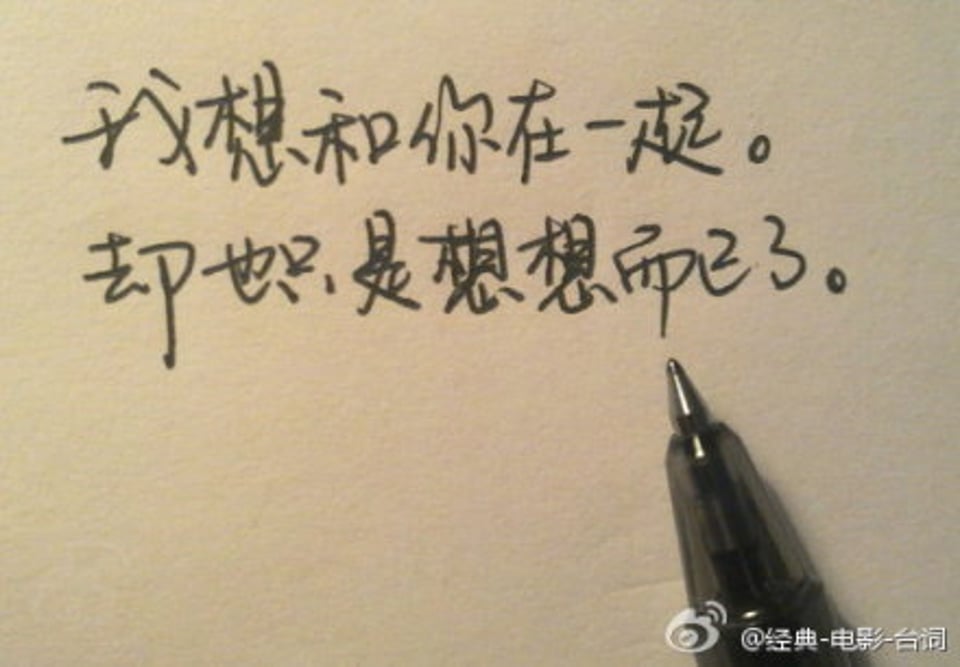 我想和你在一起。
却也只是想想而已了。
@经典-电影-台词